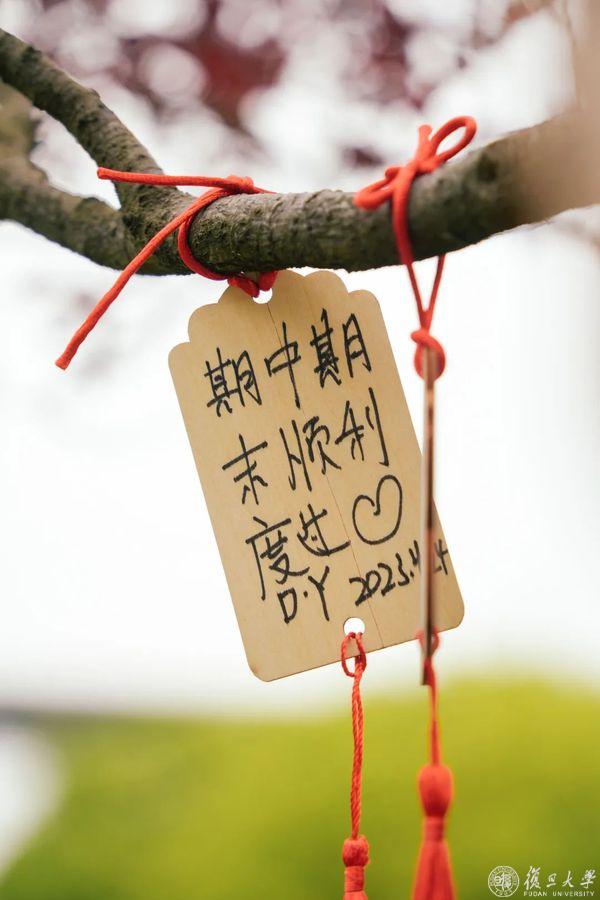 期中期
末顺利
度过♡
D.Y 2023.4
復旦大學
FUDAN UNIVERSITY